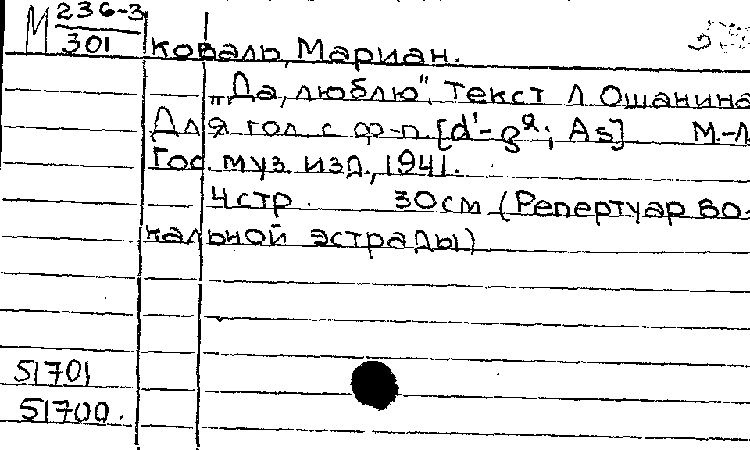 М 236-3
301
Коваль, Мариан.
"Да, люблю". Текст Л Ошанина
Для гол с ф-п. [d'-g²; As] М.-Л
Гос. муз. изд., 1941.
4 стр. 30 см (Репертуар во-
кальной эстрады)
51701
51700.